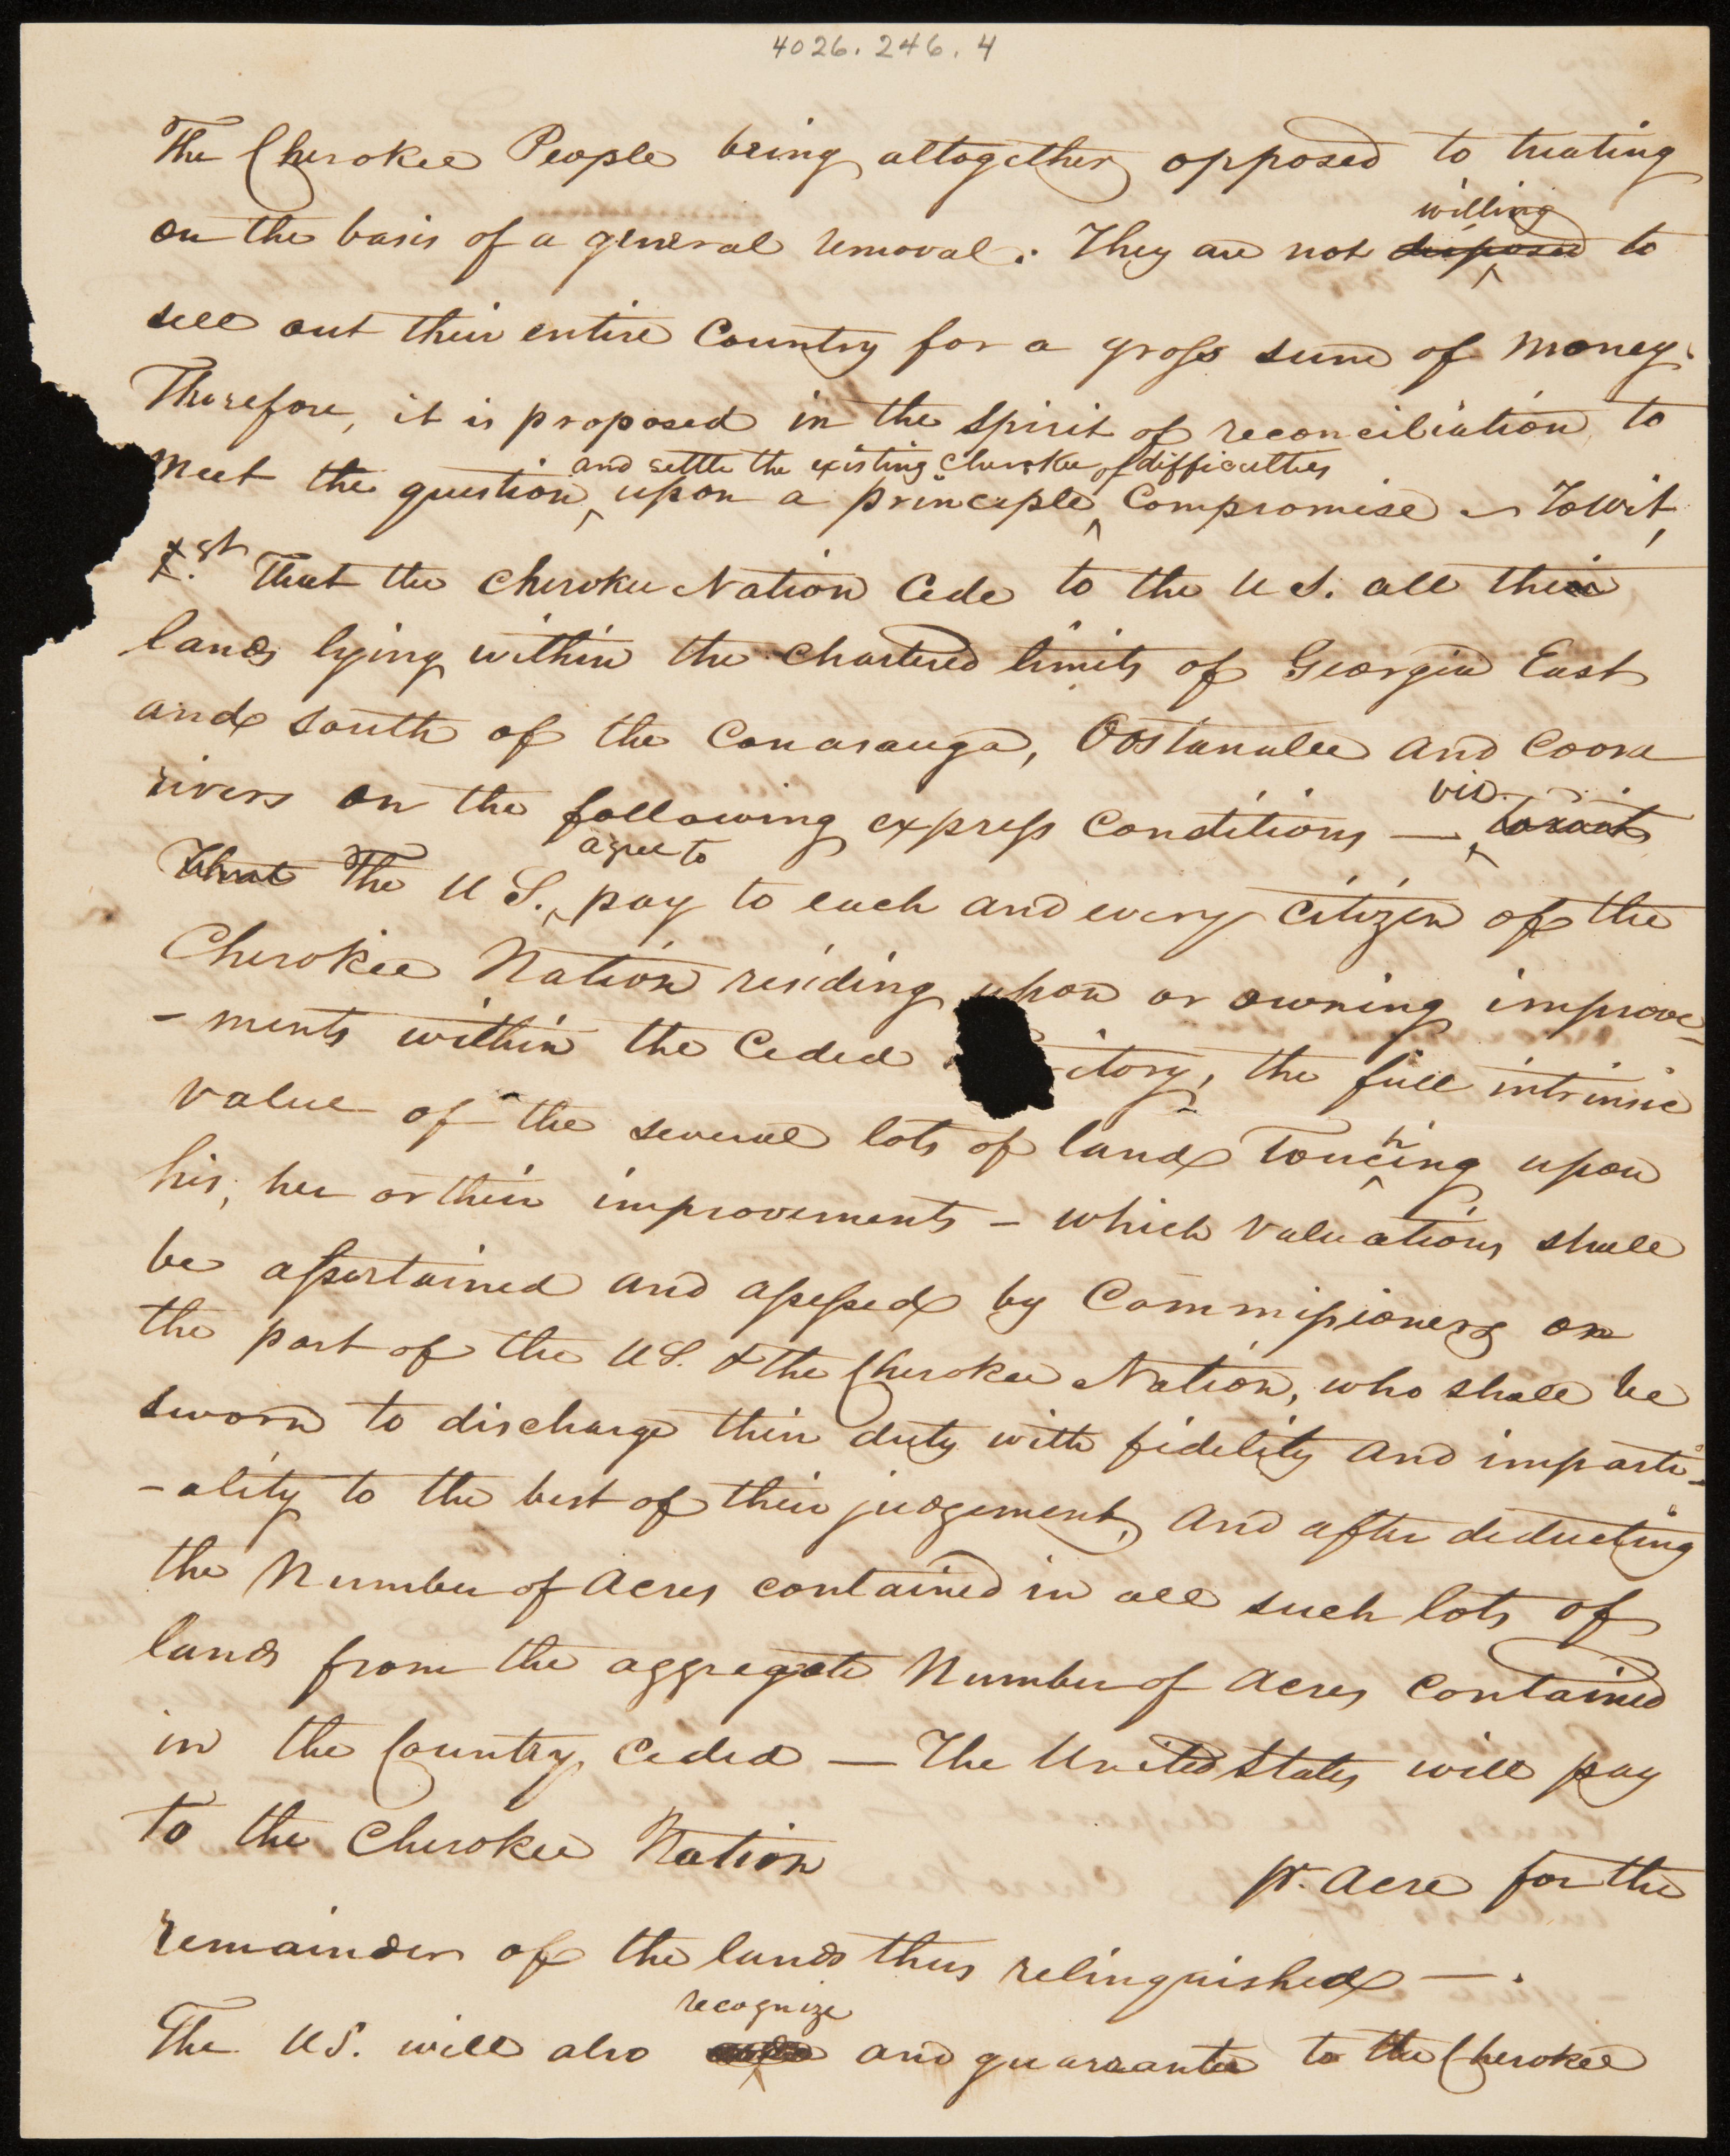 4026.246.4
The Cherokee People being altogether opposed to treating
willing
on the basis of a general removal. They are not disposed to
sell out their entire Country for a gross sum of money.
Therefore, it is proposed in the spirit of reconciliation to
and settle the existing Cherokee of difficulties
meet the question upon a principle compromise – Towit,
1.st That the Cherokee Nation Cede to the U S. all their
lands lying within the chartered limits of Georgia East
and south of the Conasauga, Oostanalee and Coosa
viz.
rivers on the following express conditions — towit
agree to
That The U S. pay to each and every citizen of the
Cherokee Nation residing upon or owning improve-
-ments within the Ceded itory, the full intrinsic
value of the several lots of land Touching upon
his, her or their improvements – which valuations shall
be assertained and assessed by Commissioners on
the part of the US. & the Cherokee Nation, who shall be
sworn to discharge their duty with fidelity and imparti-
-ality to the best of their judgement, and after deducting
the Number of Acres contained in all such lots of
lands from the aggregate Number of Acres contained
in the Country Ceded — The United States will pay
To the Cherokee Nation pr. Acre for the
remainder of the lands thus relinquished —.
recognize
The U S. will also and guarrantee to the Cherokee